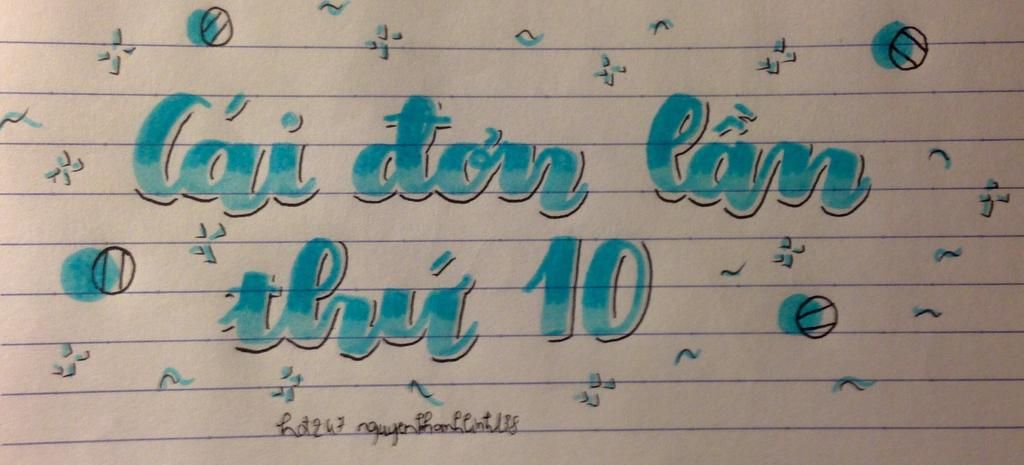 Cái đơn lần
thứ 10
hd247 nguyenthanhlinh188